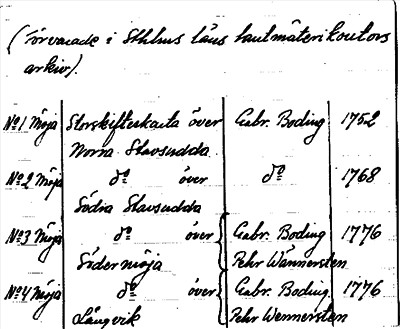 (Förvarade i Sthlms läns lantmäterikontors
arkiv).
No 1 Möja Storskifteskarta över Gabr. Boding 1752
Norra Stavsudda
No 2 Möja do över do 1768
Södra Stavsudda
No 3 Möja do över Gabr. Boding 1776
Södermöja Pehr Wännersten
No 4 Möja do över Gabr. Boding 1776
Långvik Pehr Wennersten